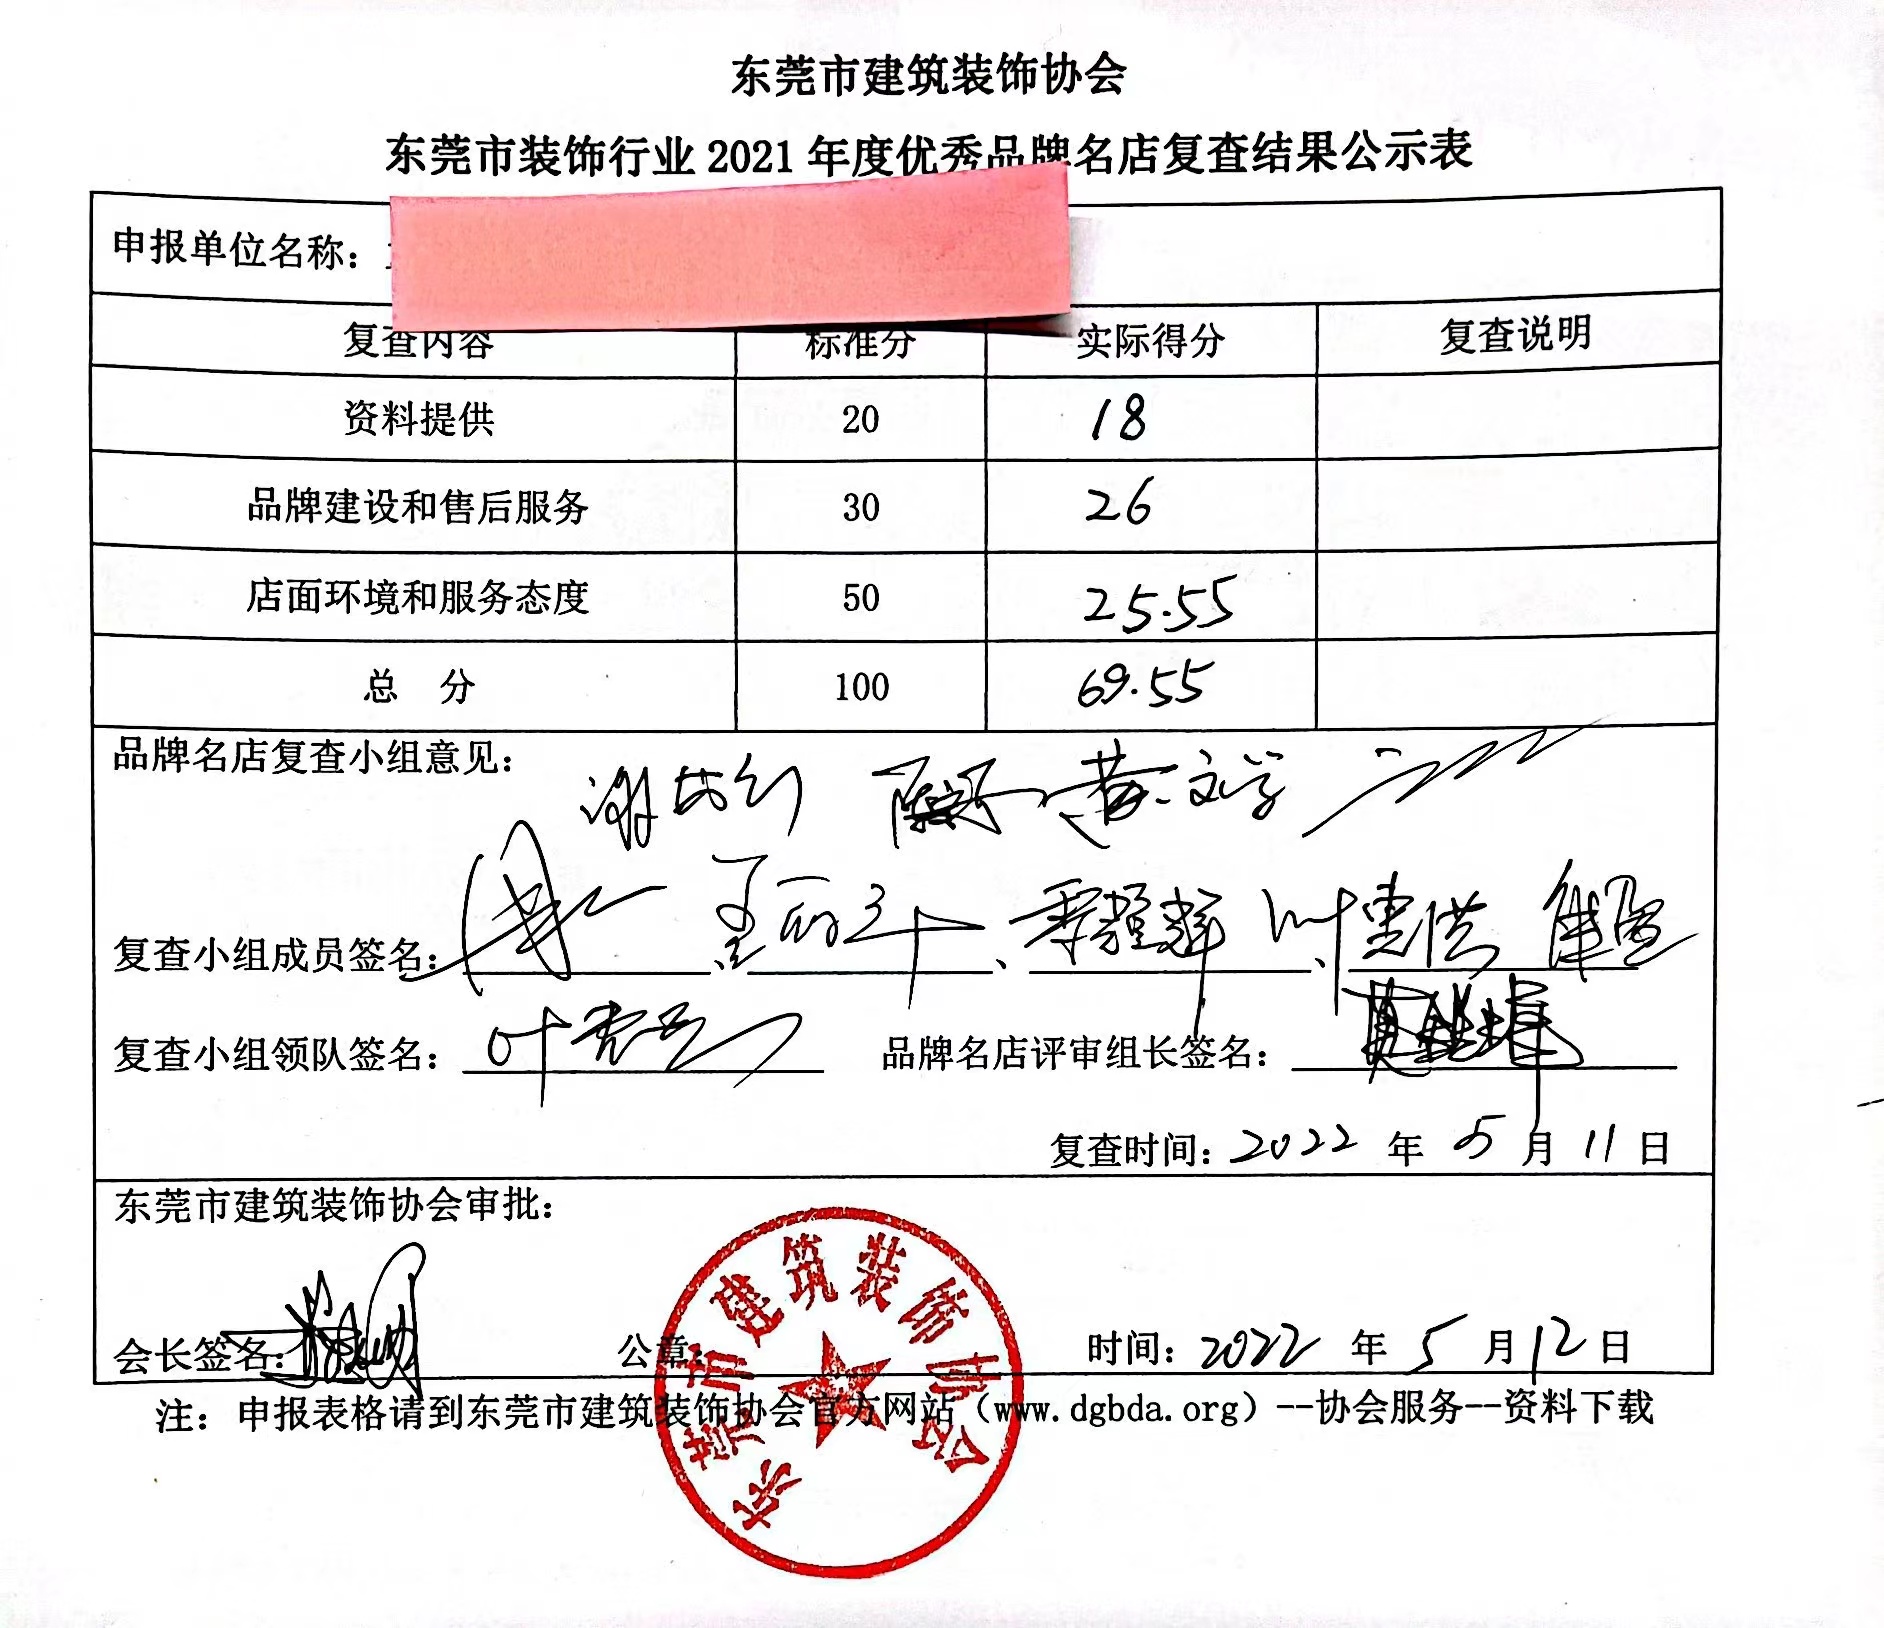 东莞市建筑装饰协会
东莞市装饰行业 2021 年度优秀品牌名店复查结果公示表
申报单位名称：
复查内容 标准分 实际得分 复查说明
资料提供 20 18
品牌建设和售后服务 30 26
店面环境和服务态度 50 25.55
总 分 100 69.55
品牌名店复查小组意见：
黄文学
复查小组成员签名：
复查小组领队签名： 品牌名店评审组长签名：
复查时间：2022 年 5 月 11 日
东莞市建筑装饰协会审批：
会长签名： 公章： 时间：2022 年 5 月 12 日
东莞市建筑装饰协会
注：申报表格请到东莞市建筑装饰协会官方网站（www.dgbda.org）--协会服务--资料下载